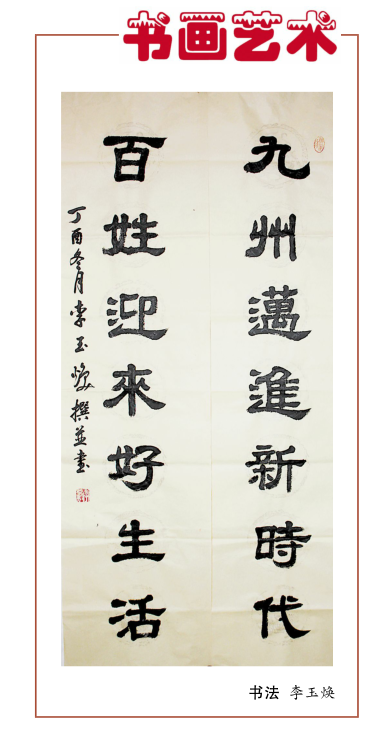 书画艺术
九州邁進新時代
百姓迎來好生活
丁酉冬月李玉焕撰並書
书法 李玉焕